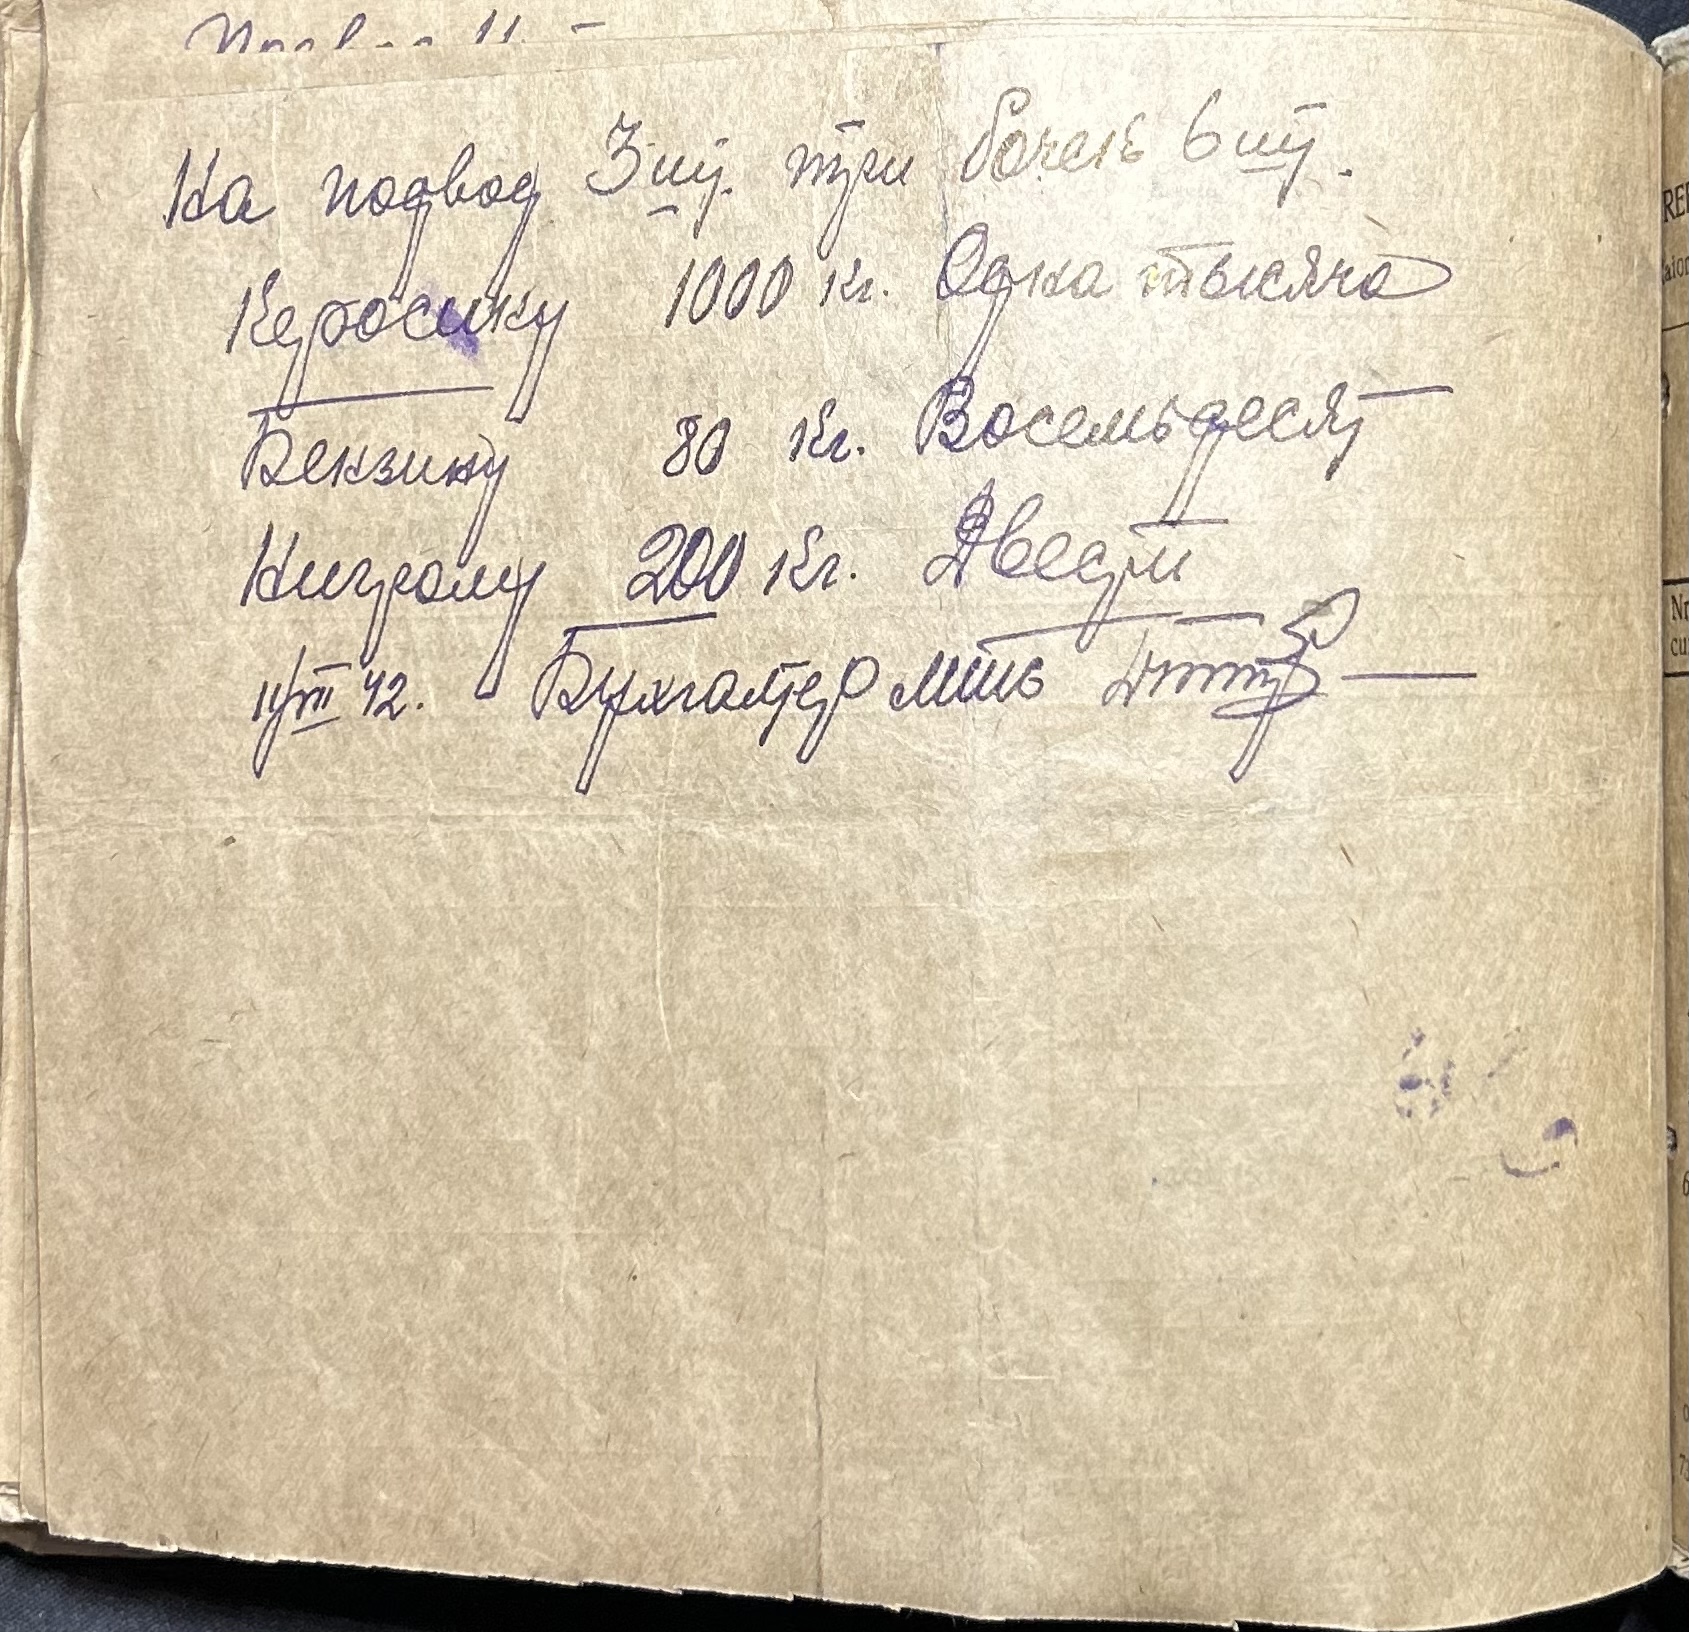 На подвод 3 шт. три бочек 6 шт.
Керосину 1000 кг. Одна тысяча
Бензину 80 кг. Восемьдесят
Нигролу 200 кг. Двести
11/VII 42. Бухгалтер мтс